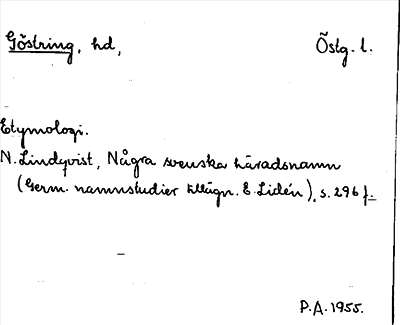 Göstring, hd, Östg. l.
Etymologi.
N. Lindqvist, Några svenska häradsnamn
(Germ. namnstudier tillägn. E. Lidén), s. 296 f.
P.A. 1955.